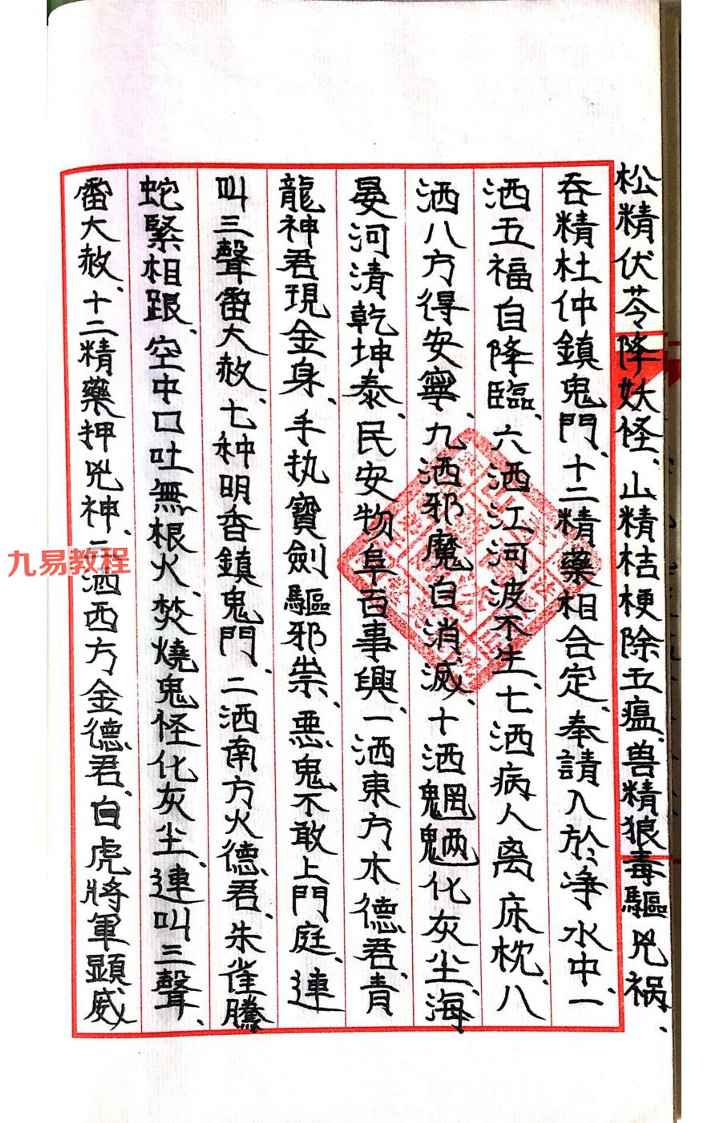 松精伏苓降妖怪、山精桔梗除五瘟、兽精狼毒驅兇祸、
吞精杜仲鎮鬼門、十二精藥相合定、奉請入於净水中、一
洒五福自降臨、六洒江河波不生、七洒病人离床枕、八
洒八方得安寧、九洒邪魔自消滅、十洒魍魎化灰尘、海
晏河清乾坤泰、民安物阜百事興、一洒東方木德君、青
龍神君現金身、手执寶劍驅邪祟、悪鬼不敢上門庭、連
叫三聲畨大赦、七种明香鎮鬼門、二洒南方火德君、朱雀騰
蛇緊相跟、空中口吐無根火、焚燒鬼怪化灰尘、連叫三聲、
畨大赦、十二精藥押兇神、三洒西方金德君、白虎將軍顕威
九易教程